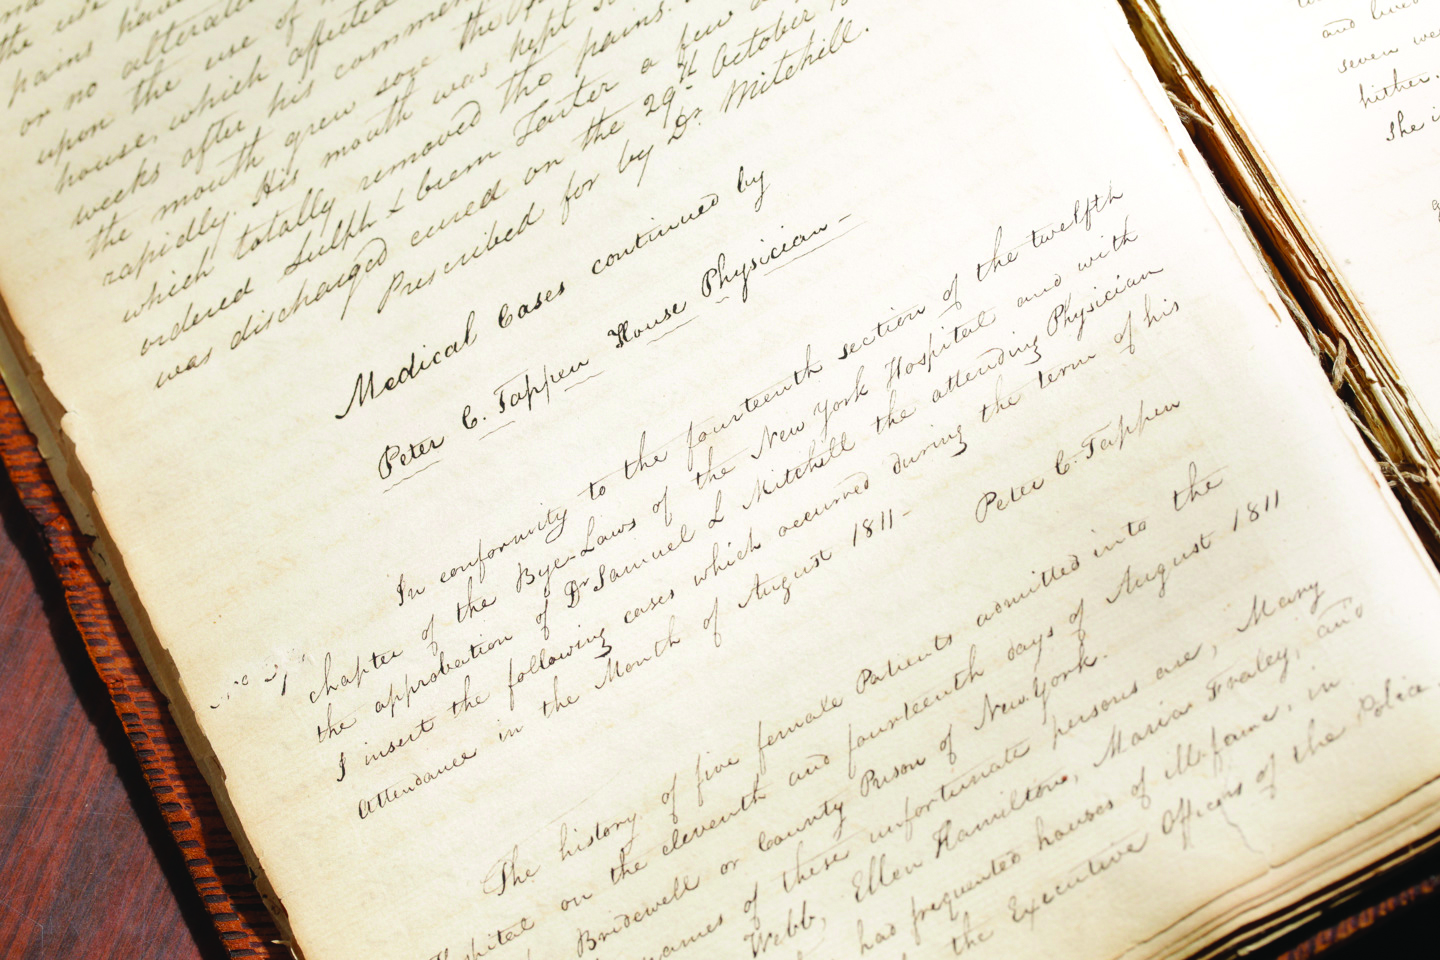 the use
pains have
or no alterat
upon the use of
house, which affected
weeks after his commen
the mouth grew sore the
rapidly. His mouth was kept
which totally removed the pains.
ordered Sulph & brem Tarter a few
was discharged cured on the 29th October
Prescribed for by Dr. Mitchill.
Medical Cases continued by
Peter C. Tappen House Physician-
In conformity to the fourteenth section of the twelfth
chapter of the Bye-Laws of the New York Hospital and with
the approbation of Dr Samuel L Mitchill the attending Physician
I insert the following cases which occurred during the term of his
Attendance in the Month of August 1811-
Peter C. Tappen
The history of five female Patients admitted into the
spital on the eleventh and fourteenth days of August 1811
Bridewell or County Prison of New York.
names of these unfortunate persons are, Mary
Webb, Ellen Hamilton, Maria Fraley, and
had frequented houses of illfame, in
the Executive Officers of the Police
and lived
seven we
hither.
She i